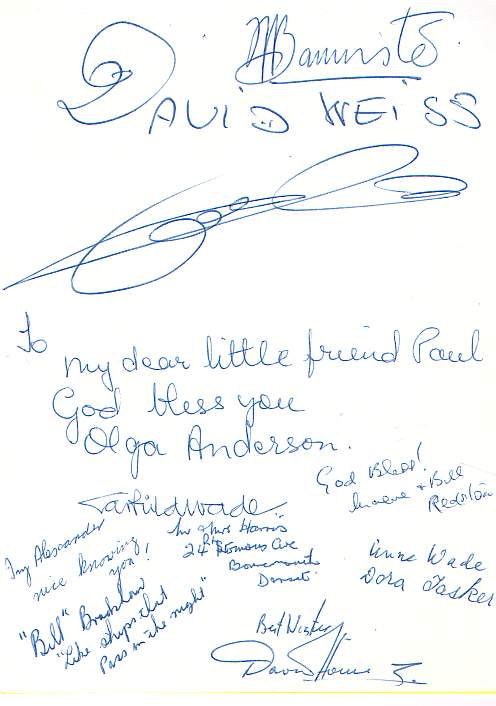 Bannister
DAVID WEISS
To
my dear little friend Paul
God bless you
Olga Anderson.
God Bless!
+ Bill
Wade
Mr & Mrs Harris
24 Ave
Bournemouth
Dorset.
Alexander
nice knowing
you!
Anne Wade
Dora Tasker
"Bill" Bradshaw
"Like ships that
Pass in the night"
Best Wishes
David